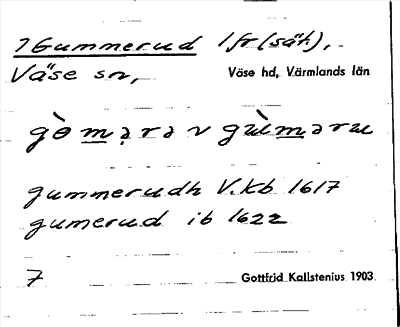 7 Gummerud 1 fr (sät),
Väse sn, Väse hd, Värmlands län
gò m̲ ạ r ə v gùm̲əru
gummerudh V.kb 1617
gumerud ib 1622
7 Gottfrid Kallstenius 1903